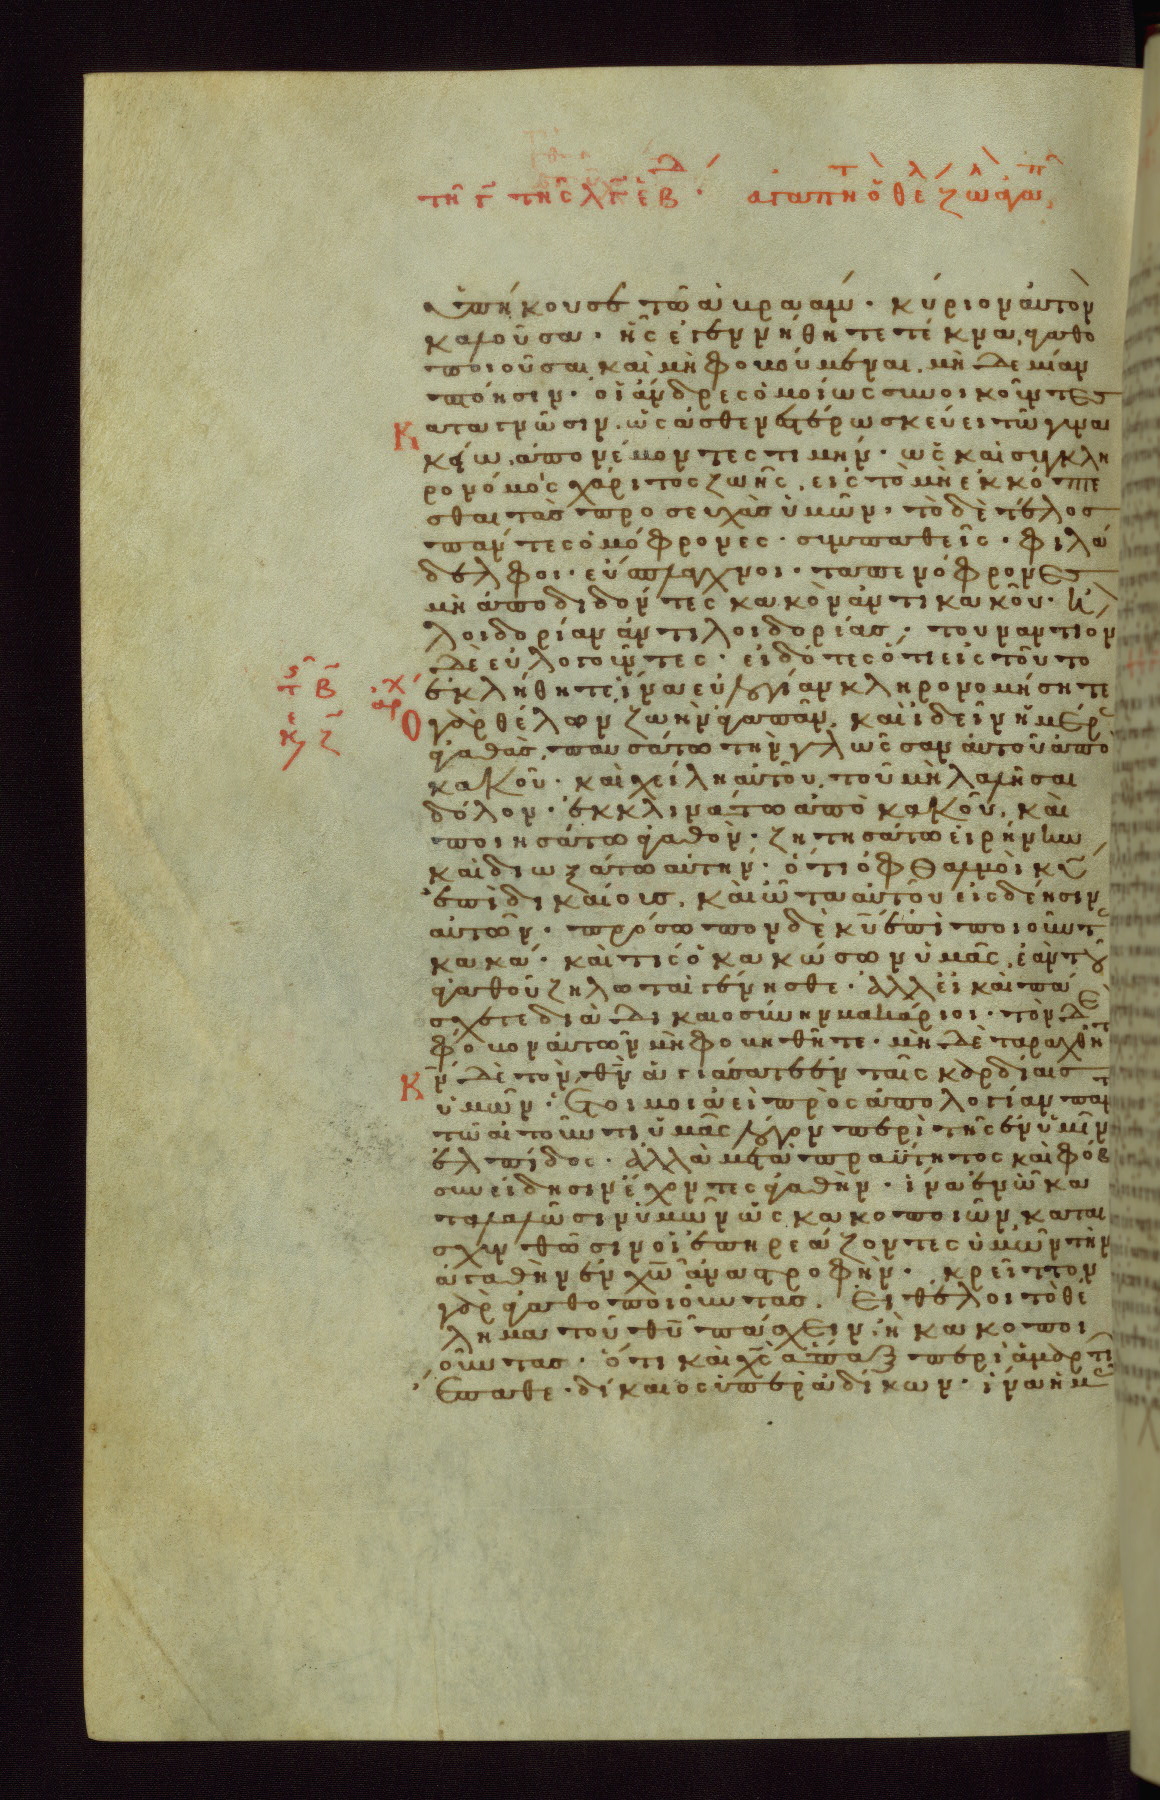 τῇ γ τῆς λγ ἑβδ · ἀγαπητοὶ ὁ θέλων ζωὴν ἀγαπᾶν
ὑπήκουσε τῶ ἀβραάμ · κύριον ἀυτὸν
καλοῦσα · ἧς ἐγεννήθητε τέκνα, ἀγαθο
ποιοῦσαι καὶ μὴ φοβούμεναι, μὴ δεμίαν
πτόησιν · οἱ ἄνδρες ὁμοίως συνοικοῦντες
κατα γνῶσιν, ὡς ἀσθενεστέρω σκεύει τῶ γυναι
κείω, ἀπονέμοντες τιμήν · ὡς καὶ συγκλη
ρονόμοις χάριτος ζωῆς, εἰς τὸ μὴ ἐκκόπτε
σθαι τὰς προσευχὰς ὑμῶν · τὸ δὲ τέλος
πάντες ὁμόφρονες · συμπαθεῖς · φιλά
δελφοι · εὔσπλαγχνοι · ταπεινόφρονες
μὴ ἀποδιδόντες κακὸν ἀντι κακοῦ · ἢ
λοιδορίαν ἀντι λοιδορίας · τουναντιον
δὲ εὐλογοῦντες · εἰδότες ὅτι εἰς τοῦτο
ἐκλήθητε ἵνα εὐλογίαν κληρονομήσητε
Ὁ γὰρ θέλων ζωὴν ἀγαπᾶν, καὶ ἰδεῖν ἡμέρας
ἀγαθὰς, παυσάτω τὴν γλῶσσαν ἀυτοῦ ἀπὸ
κακοῦ · καὶ χείλη ἀυτοῦ, τοῦ μὴ λαλῆσαι
δόλον · ἐκκλινάτω ἀπὸ κακοῦ, καὶ
ποιησάτω ἀγαθόν · ζητησάτω εἰρήνην
καὶ διωξάτω αὐτήν · ὅτι ὀφθαλμοὶ κυ
ἐπὶ δικαίους, καὶ ὦτα αὐτοῦ εἰς δέησιν
αὐτῶν · πρόσωπον δὲ κυ ἐπὶ ποιοῦντας
κακά · καὶ τίς ὁ κακώσων ὑμᾶς, ἐὰν τοῦ
ἀγαθοῦ ζηλωταὶ γένησθε · ἀλλ εἰ καὶ πά
σχετε διὰ δικαιοσύνην μακάριοι · τὸν δὲ
φόβον ἀυτῶν μὴ φοβηθῆτε · μὴ δὲ ταραχθῆτε
κν δὲ τὸν θν ἁγιάσατε ἐν ταῖς καρδίαις
ὑμῶν · ἕτοιμοι ἀεὶ πρὸς ἀπολογίαν παν
τῶ αἰτοῦντι ὑμᾶς λόγον περὶ τῆς ἐν ὑμῖν
ἐλπίδος · ἀλλὰ μετὰ πραΰτητος καὶ φόβου
συνείδησιν ἔχοντες ἀγαθήν · ἵνα ἐν ὧ κα
ταλαλῶσιν ὑμῶν ὡς κακοποιῶν, καται
σχυνθῶσιν οἱ ἐπηρεάζοντες ὑμῶν τὴν
ἀγαθὴν ἐν χω ἀναστροφήν · κρεῖττον
γὰρ ἀγαθοποιοῦντας, εἰ θέλοι τὸ θέ
λημα τοῦ θυ πάσχειν, ἢ κακοποι
οῦντας · ὅτι καὶ χς ἅπαξ περὶ ἁμαρτιῶν
ἔπαθε · δίκαιος ὑπὲρ ἀδίκων · ἵνα ἡμᾶς